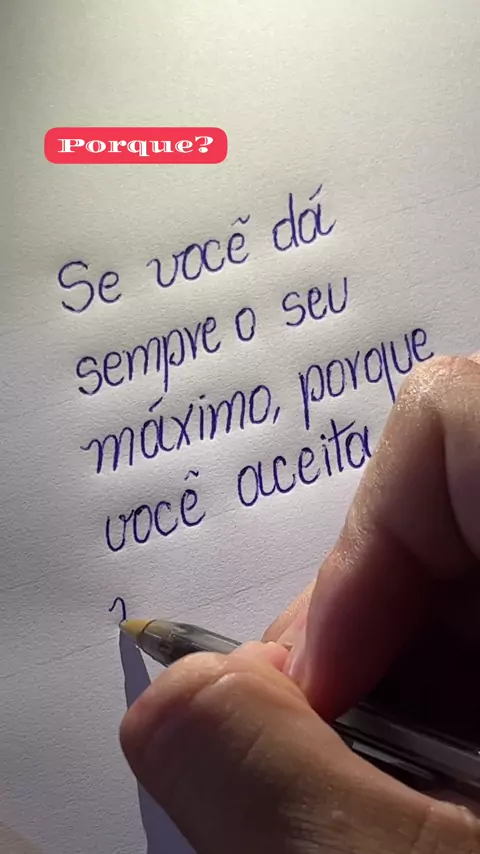 Porque?
Se você dá
sempre o seu
máximo, porque
você aceita